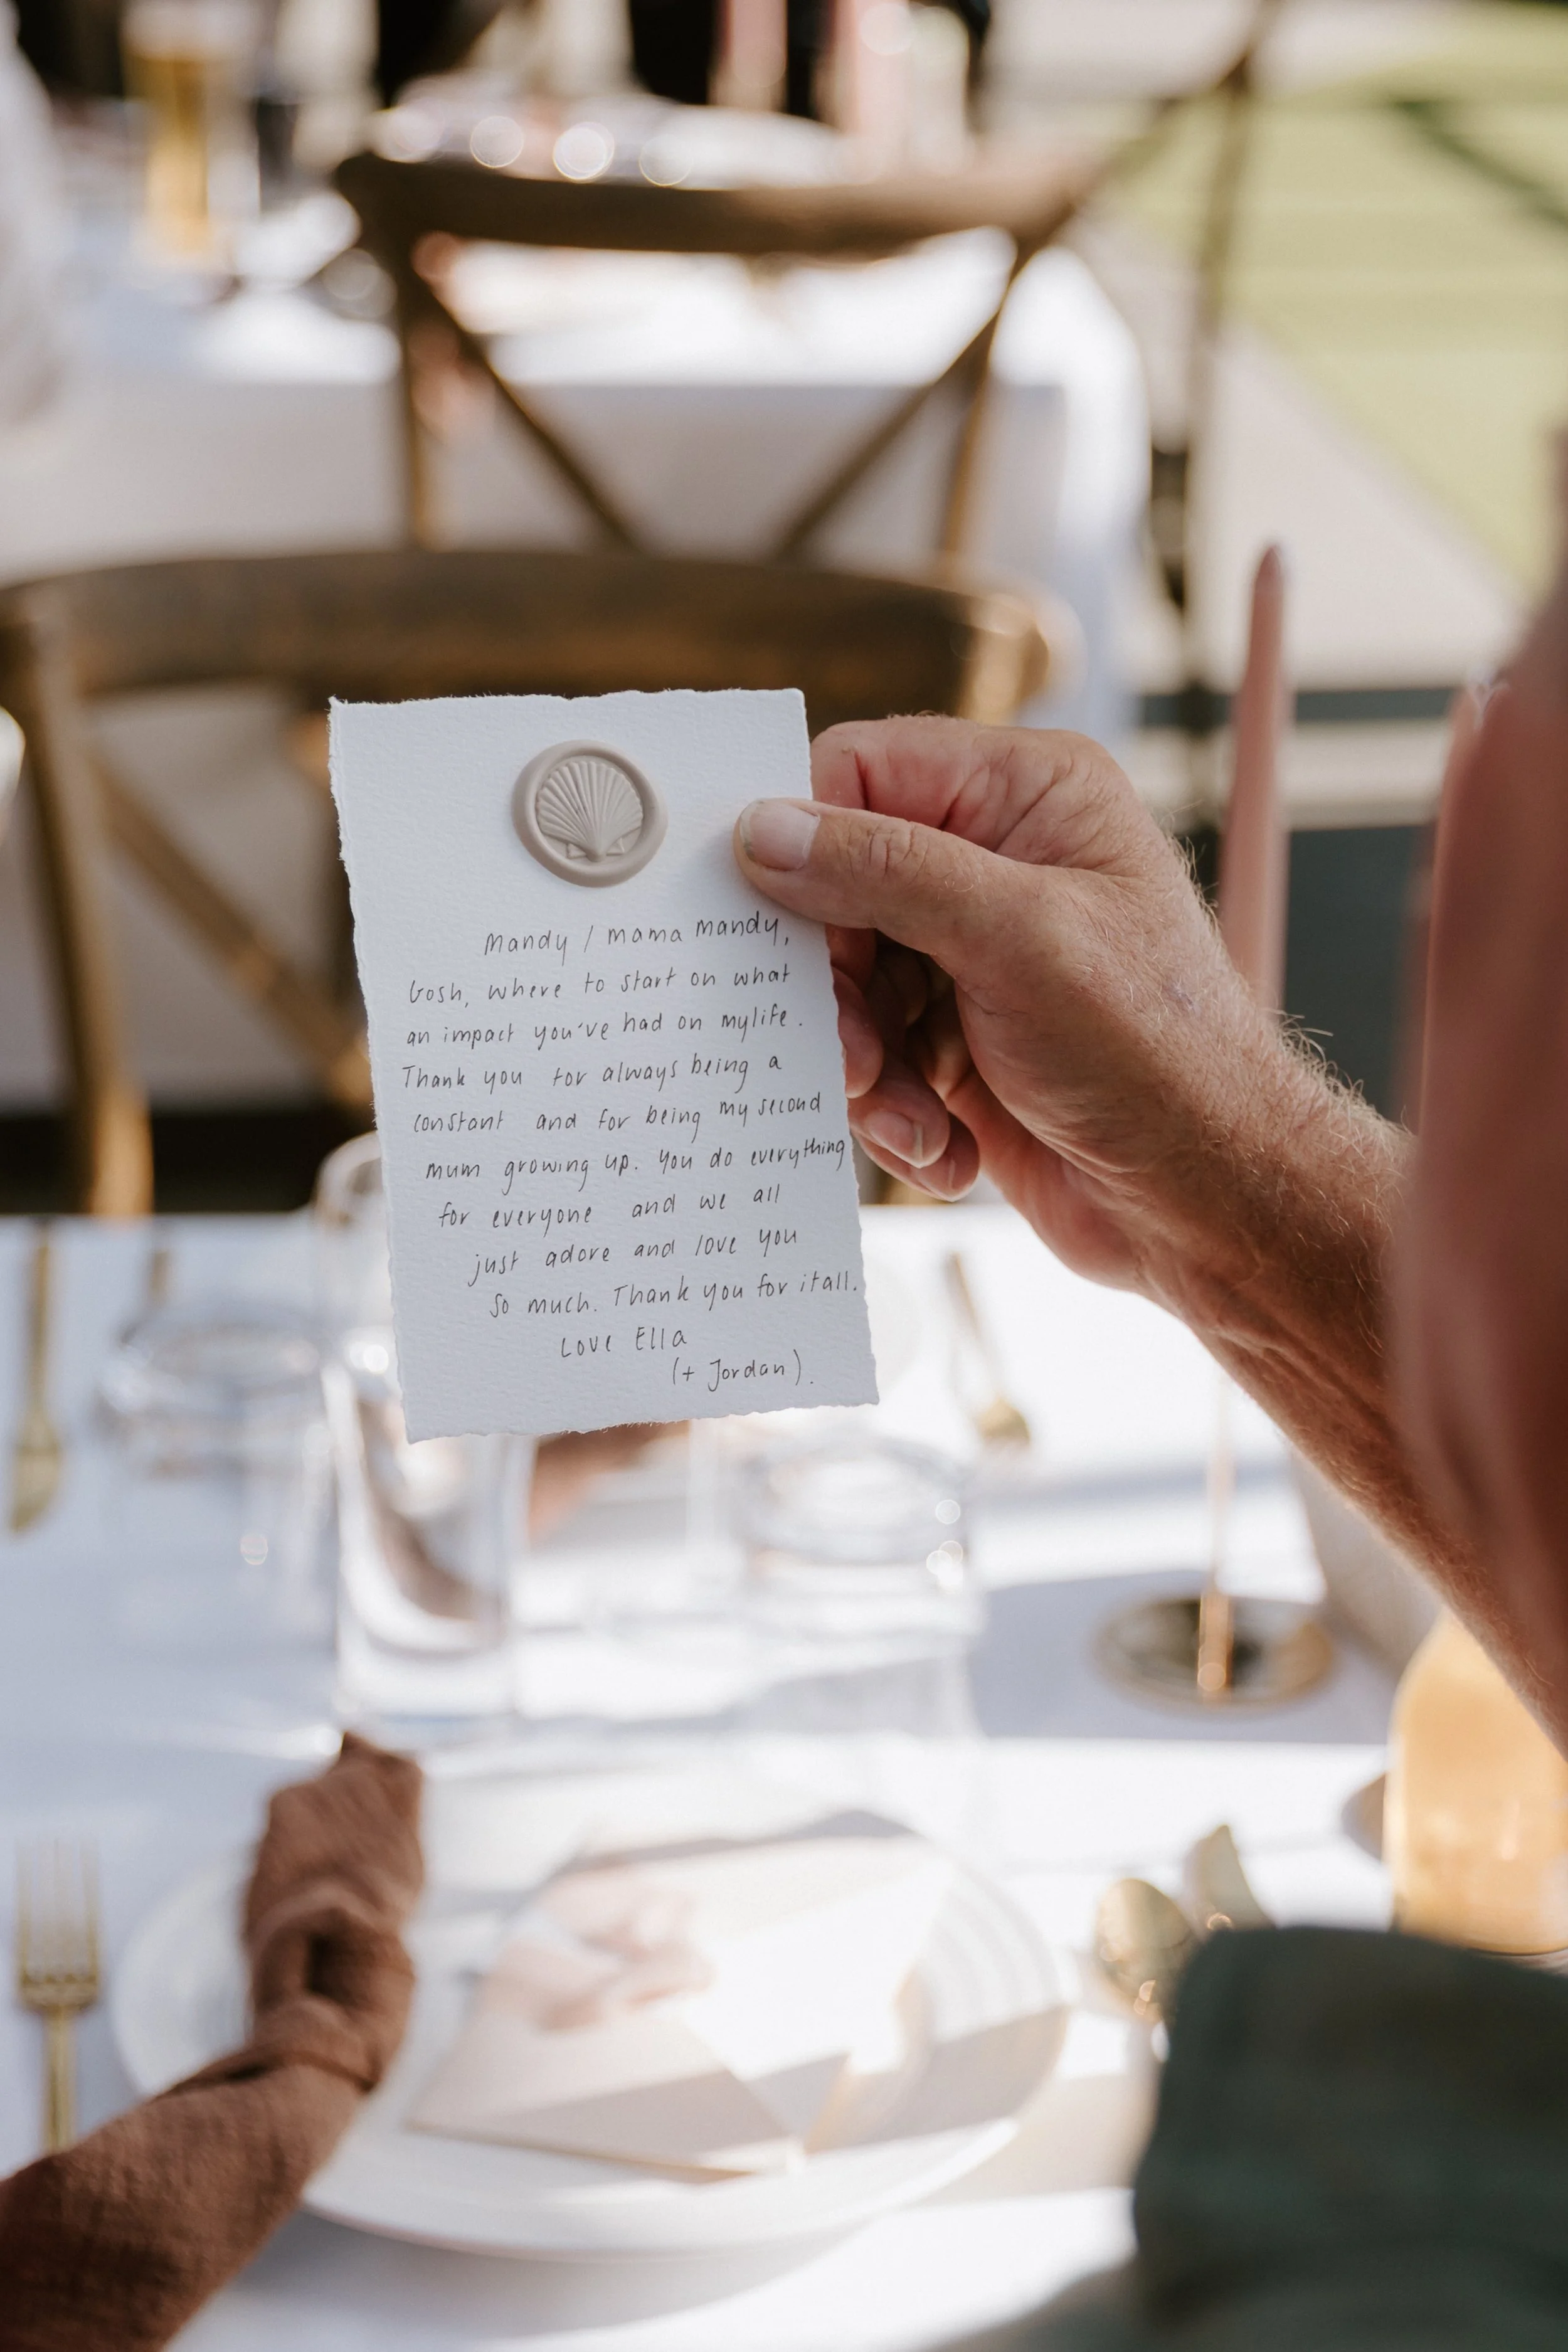 Mandy / mama mandy,
Gosh, where to start on what
an impact you've had on my life.
Thank you for always being a
constant and for being my second
mum growing up. You do everything
for everyone and we all
just adore and love you
so much. Thank you for it all.
Love Ella
(+ Jordan).